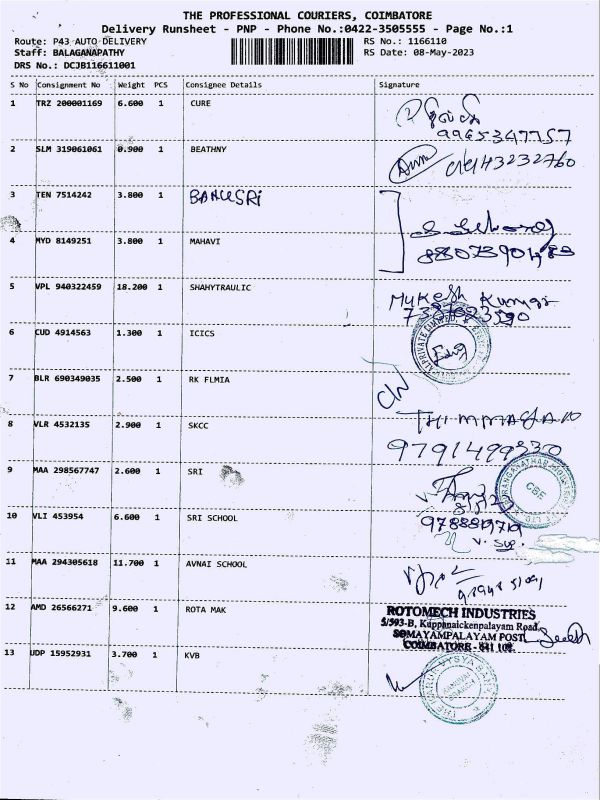 THE PROFESSIONAL COURIERS, COIMBATORE
Delivery Runsheet - PNP - Phone No.:0422-3505555 - Page No.:1
Route: P43 AUTO DELIVERY
RS No.: 1166110
Staff: BALAGANAPATHY
RS Date: 08-May-2023
DRS No.: DCJB116611001
S No Consignment No Weight PCS Consignee Details Signature
1 TRZ 200001169 6.600 1 CURE
9965347757
2 SLM 319061061 0.900 1 BEATHNY
3 TEN 7514242 3.800 1 BANUSRI
4 MYD 8149251 3.800 1 MAHAVI
5 VPL 940322459 18.200 1 SHAHYTRAULIC
Mukesh Kumar
6 CUD 4914563 1.300 1 ICICS
7 BLR 690349035 2.500 1 RK FLMIA
8 VLR 4532135 2.900 1 SKCC
9791499330
9 MAA 298567747 2.600 1 SRI
CBE
10 VLI 453954 6.600 1 SRI SCHOOL
9788819719
V. Sup.
11 MAA 294305618 11.700 1 AVNAI SCHOOL
12 AMD 26566271 9.600 1 ROTA MAK
ROTOMECH INDUSTRIES
5/593-B, Kuppanaickenpalayam Road,
SOMAYAMPALAYAM POST
COIMBATORE - 641 108.
13 UDP 15952931 3.700 1 KVB